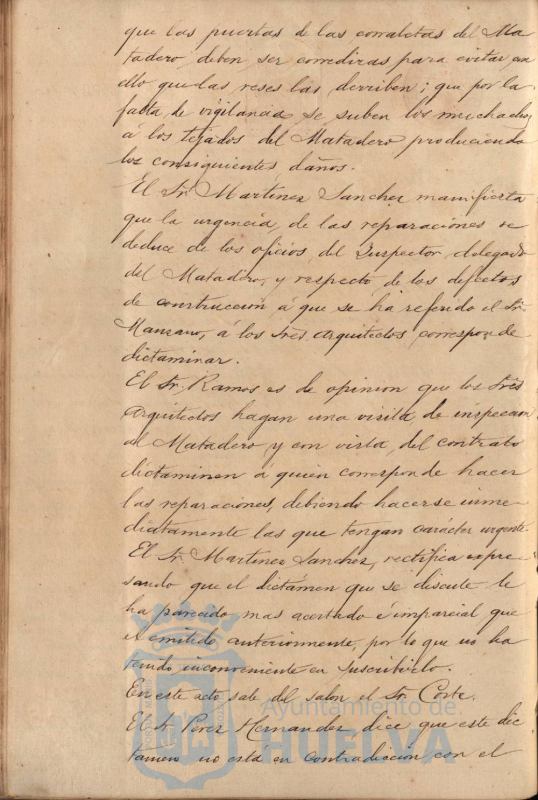 que las puertas de las corraletas del Ma-
tadero deben ser corredizas para evitar con
ello que las reses las derriben; que por la
falta de vigilancia se suben los muchachos
á los tejados del Matadero produciendo
los consiguientes daños.
El Sr. Martinez Sanchez manifiesta
que la urgencia de las reparaciones se
deduce de los oficios del Inspector delegado
del Matadero, y respecto de los defectos
de construccion á que se ha referido el Sr.
Manzano, á los Sres. arquitectos corresponde
dictaminar.
El Sr. Ramos es de opinion que los Sres
arquitectos hagan una visita de inspeccion
al Matadero y con vista del contrato
dictaminen á quien corresponde hacer
las reparaciones, debiendo hacerse inme-
diatamente las que tengan carácter urgente.
El Sr. Martinez Sanchez, rectifica expre-
sando que el dictámen que se discute le
ha parecido mas acertado é imparcial que
el emitido anteriormente, por lo que no ha
tenido inconveniente en suscribirlo.
En este acto sale del salon el Sr. Corte.
El Sr. Perez Hernandez dice que este dic-
tamen no está en contradiccion con el
Ayuntamiento de
HUELVA